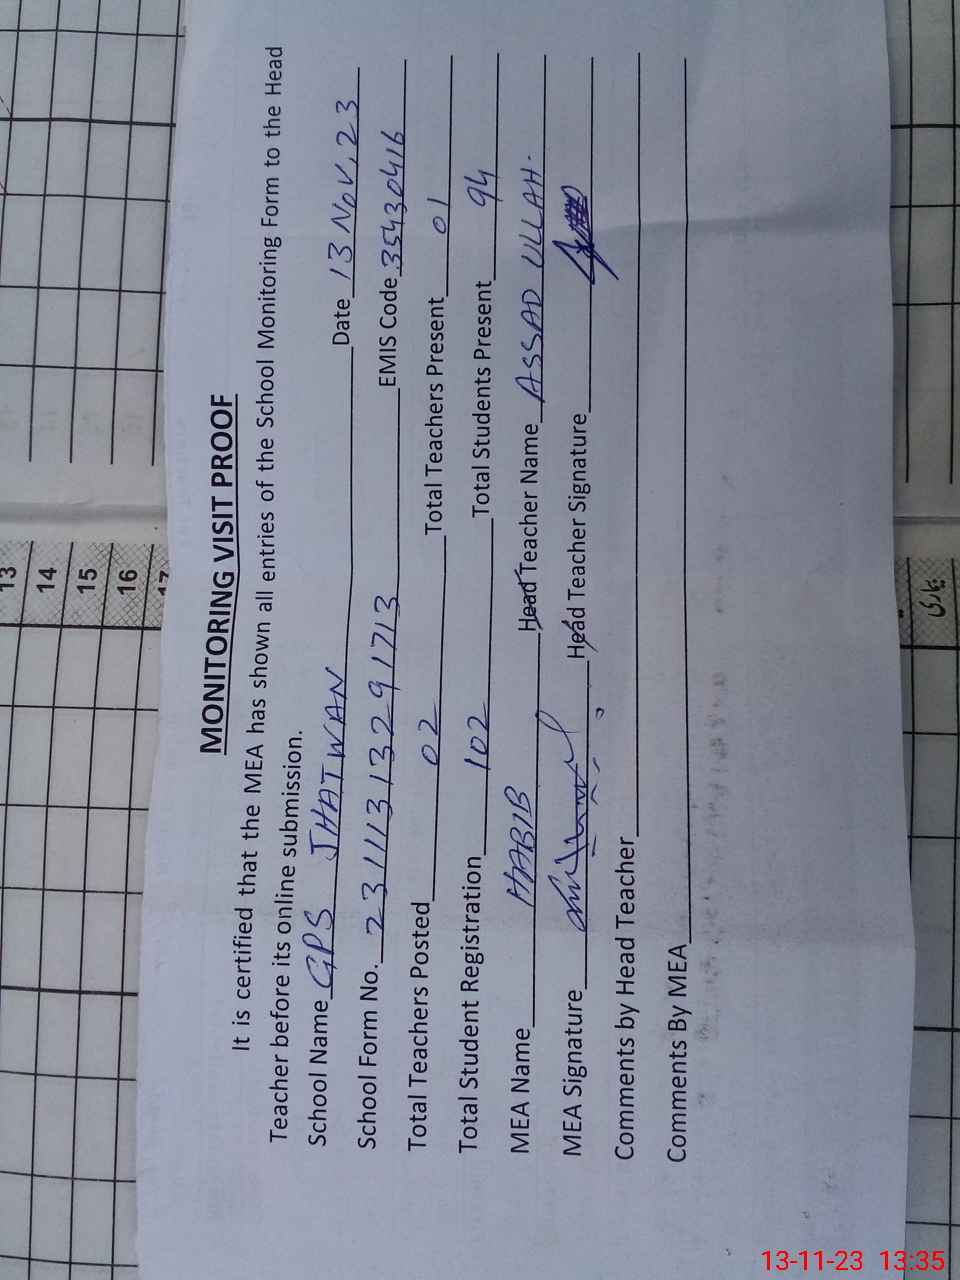 MONITORING VISIT PROOF
It is certified that the MEA has shown all entries of the School Monitoring Form to the Head
Teacher before its online submission.
School Name GPS JHATWAN Date 13 NOV, 23
School Form No. 231113132 91713 EMIS Code 35430416
Total Teachers Posted 02 Total Teachers Present 01
Total Student Registration 102 Total Students Present 94
MEA Name HABIB Head Teacher Name ASSAD ULLAH.
MEA Signature Head Teacher Signature
Comments by Head Teacher
Comments By MEA
13
14
15
16
17
13-11-23 13:35